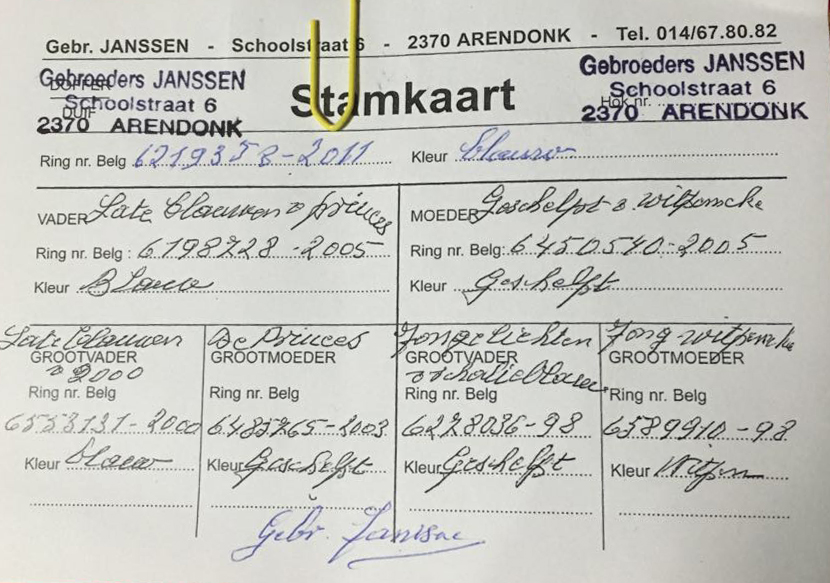 Gebr. JANSSEN - Schoolstraat 6 - 2370 ARENDONK - Tel. 014/67.80.82
Gebroeders JANSSEN
Schoolstraat 6
2370 ARENDONK
DOFFER
DUIF
Stamkaart
Gebroeders JANSSEN
Schoolstraat 6
2370 ARENDONK
Hok nr.
Ring nr. Belg 6219358-2011 Kleur blauw
VADER Late blauwen princes
Ring nr. Belg : 6198728-2005
Kleur Blauw
MOEDER Geschelpt witpenneke
Ring nr. Belg: 6450540-2005
Kleur Geschelpt
Late blauwen
GROOTVADER
2000
Ring nr. Belg
6553131-2000
Kleur blauw
De Princes
GROOTMOEDER
Ring nr. Belg
6485765-2003
Kleur Geschelpt
Jonge lichten
GROOTVADER
Ring nr. Belg
6278036-98
Kleur Geschelpt
Jong witpenneke
GROOTMOEDER
Ring nr. Belg
6589910-98
Kleur Witpen
Gebr. Janssen